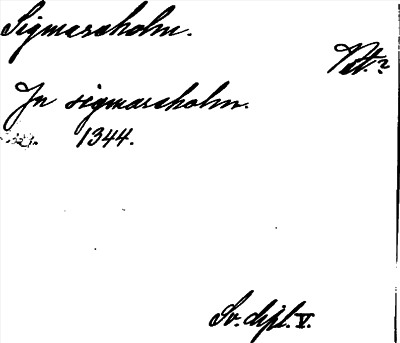 Sigmarsholm.
In sigmarsholm.
1344.
Sv. dipl. V.